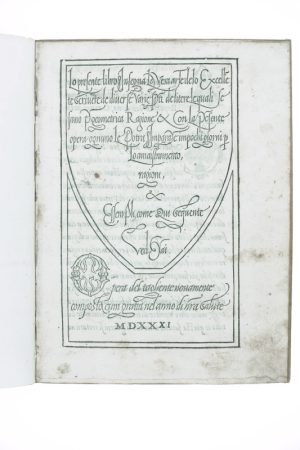 Lo presente libro Insegna La Vera arte delo Excellē
te scriuere de diuerse varie sorti de litere lequali se
fano p geometrica Ragione & Con La Presente
opera ognuno le Potra Imparare impochi giorni p
Lo amaistramento,
ragione,
&
Essempli, come Qui sequente
Vedrai
Opera del tagliente nouamente
composta cum gratia nel anno di nr̄a salute
MDXXXI